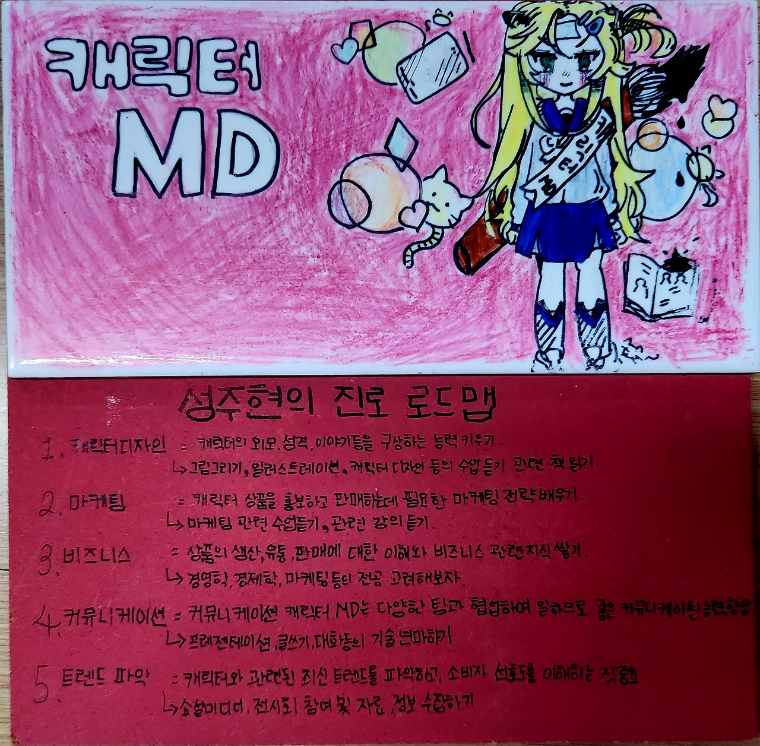 캐릭터
MD
성주현의 진로 로드맵
1. 캐릭터디자인 = 캐릭터의 외모, 성격, 이야기등을 구상하는 능력 키우기.
↳그림그리기, 일러스트레이션, 캐릭터 디자인 등의 수업듣기 관련 책 읽기.
2. 마케팅 = 캐릭터 상품을 홍보하고 판매하는데 필요한 마케팅 전략배우기.
↳마케팅 관련 수업듣기, 관련 강의 듣기.
3. 비즈니스 = 상품의 생산, 유통, 판매에 대한 이해와 비즈니스 관련지식 쌓기.
↳경영학, 경제학, 마케팅등의 전공 고려해보자.
4. 커뮤니케이션 = 커뮤니케이션 캐릭터 MD는 다양한 팀과 협업하여 일하므로 좋은 커뮤니케이션능력향상
↳프레젠테이션, 글쓰기, 대화등의 기술 연마하기
5. 트렌드 파악 = 캐릭터와 관련된 최신 트렌드를 파악하고, 소비자 선호도를 이해하는 것 중요
↳소셜미디어, 전시회 참여 및 자료, 정보 수집하기